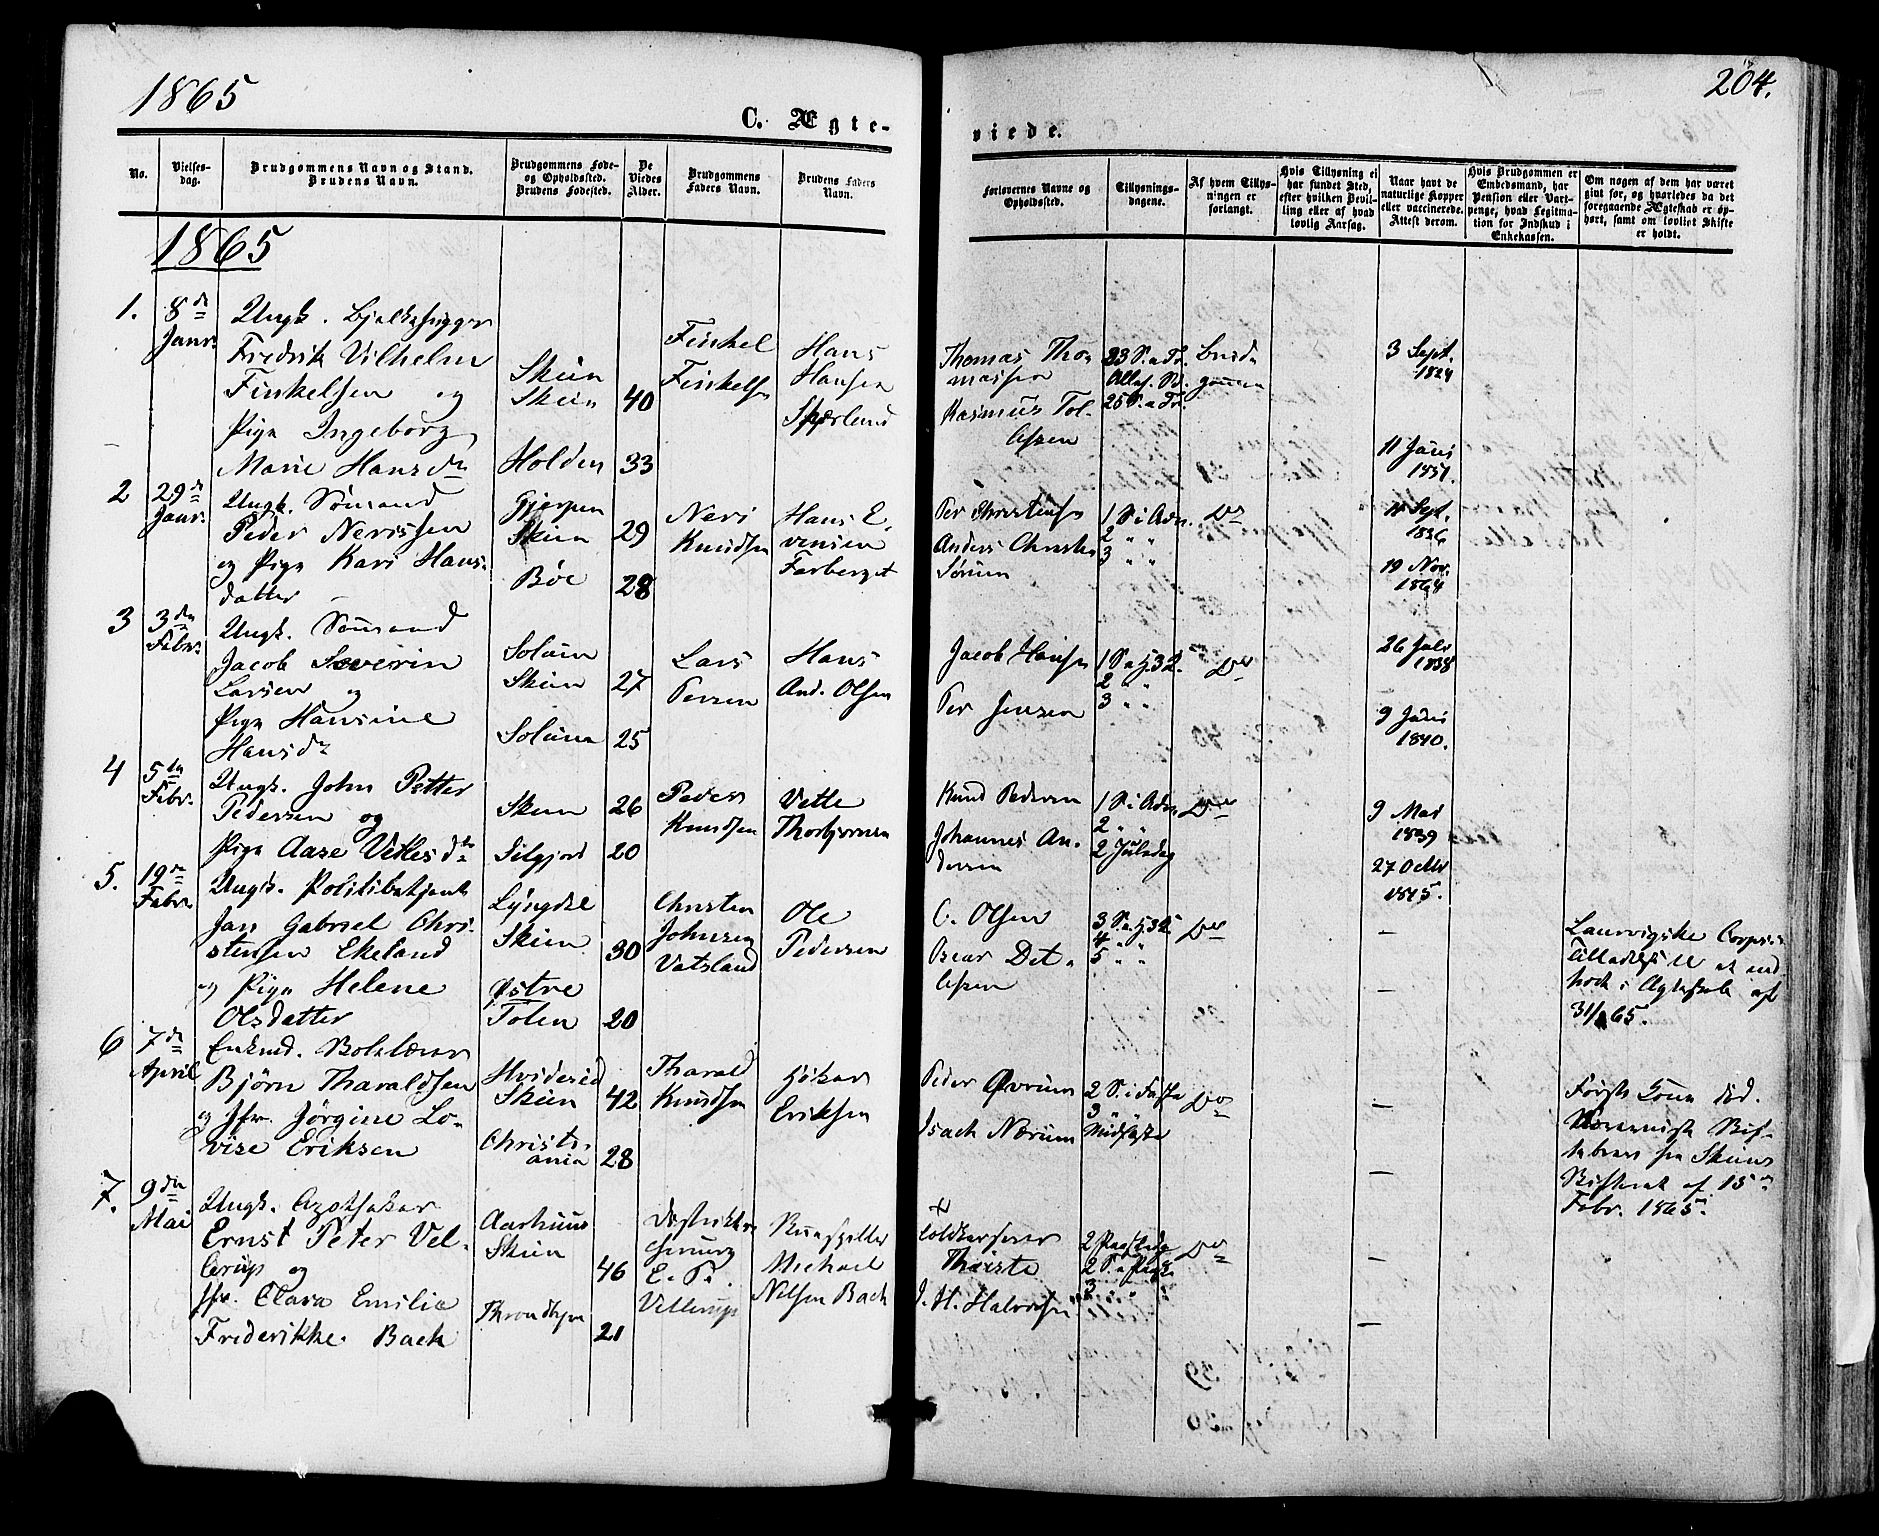 1865
204.
C. Ægte-
viede.
No.
Vielses-
dag.
Brudgommens Navn og Stand.
Brudens Navn.
Brudgommens Føde-
og Opholdssted.
Brudens Fødested.
De
Viedes
Alder.
Brudgommens
Faders Navn.
Brudens Faders
Navn.
Forlovernes Navne og
Opholdssted.
Tillysnings-
dagene.
Af hvem Tillys-
ningen er
forlangt.
Hvis Tillysning ei
har fundet Sted,
efter hvilken Bevil-
ling eller af hvad
lovlig Aarsag.
Naar havt de
naturlige Kopper
eller vaccinerede.
Attest derom.
Hvis Brudgommen er
Embedsmand, har
Pension eller Vart-
penge, hvad Legitima-
tion for Indskud i
Enkekassen.
Om nogen af dem har været
gift før, og hvorledes da det
foregaaende Ægteskab er op-
hørt, samt om lovligt Skifte
er holdt.
1865
1.
8de
Janr.
Ungk. Bjelkehugger
Fredrik Vilhelm
Finkelsen og
Pige Ingeborg
Marie Hansdr
Skien
Skien
Holden
40
33
Finkel
Finkelsen
Hans
Hansen
Thomas Tho-
massen
Rasmus Tol-
lefsen
23 S. a Tr.
25 S. a Tr.
Brud-
gommen
3 Sept.
1824
11 Juni
1831.
2
29de
Janr.
Ungk. Sømand
Peder Nerissen
og Pige Kari Hans-
datter
Gjerpen
Skien
Bøe
29
28
Neri
Knudsen
Hans E-
vensen
Per Christensen
Anders Christen
1 S. i Adv.
2 " "
3 " "
Do
11 Sept.
1836
19 Nov.
1864
3
3die
Febr.
Ungk. Sømand
Jacob Severin
Larsen og
Pige Hansine
Hansdr
Solum
Skien
Solum
27
25
Lars
Persen
Hans
And. Olsen
Jacob Hansen
Per Jensen
1 S. a H3K.
2 " "
3 " "
Do
26 Juli
1838
9 Juni
1840.
4
5te
Febr.
Ungk. John Petter
Pedersen og
Pige Aase Vetlesdtr
Skien
Silgjord
26
20
Peder
Knudsen
Vetle
Thorbjørnsen
Knud Pedersen
Johannes An-
dersen
1 S. i Adv.
2 " "
2 Juledag
Do
9 Mai
1839
27 Octbr
1845.
5.
19de
Febr.
Ungk. Politibetjent
Jan Gabriel Chri-
stensen Ekeland
og Pige Helene
Olsdatter
Lyngdal
Skien
Østre
Toten
30
20
Christen
Johnsen
Vatsland
Ole
Pedersen
C. Olsen
Det-
lefsen
3 S. a H3K.
4 " "
5 " "
Do
—
—
Laurvigske Corps's
Tilladelse til at ind-
træde i Ægteskab af
31/1 65.
6
7de
April
Enkmd. Bolelærer
Bjørn Tharaldsen
og Jfr. Jørgine Lo-
vise Eriksen
Hvideseid
Skien
Christi-
ania
42
28
Tharald
Knudsen
Eriksen
Peder Øvrum
Isach Nærum
2 S. i Faste
3 " "
Midfaste
Do
—
—
Første Kone død.
fra Skiens
Skifteret af 15de
Febr. 1865.
7.
9de
Mai
Ungk. Apotheker
Ernst Peter Vel-
lerup og
Jfr. Clara Emilie
Frederikke Bach
Aarhuus
Skien
Throndhjem
46
21
Distrikts-
chirurg
E. P.
Vellerup
Michael
Nilsen Bach
Toldkasserer
J. H. Halvorsen
2 Paaskedag
2 S. a Paaske
3 " "
Do
—
—